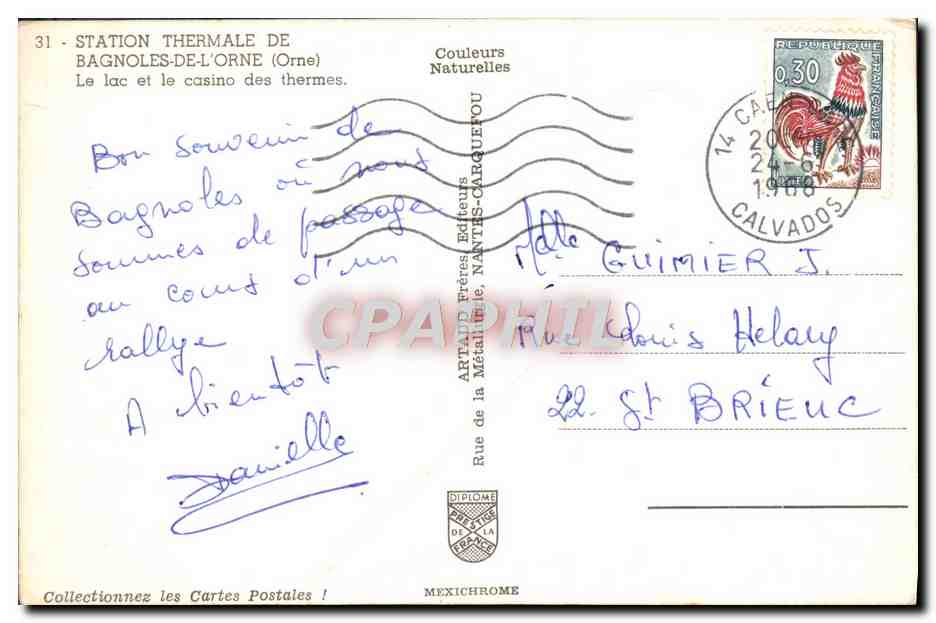 31 - STATION THERMALE DE
BAGNOLES-DE-L'ORNE (Orne)
Le lac et le casino des thermes.
Couleurs
Naturelles
REPUBLIQUE FRANÇAISE
0,30
POSTES
14 CAEN
24-6
1968
CALVADOS
Bon souvenir de
Bagnoles où nous
sommes de passage
au cours d'un
rallye
A bientôt
Danielle
ARTAUD Frères, Editeurs
Rue de la Métallurgie, NANTES-CARQUEFOU
Mdlle GUIMIER J.
Rue Louis Helary
22. St BRIEUC
CPAPHIL
DIPLOME
PRESTIGE
DE LA
FRANCE
Collectionnez les Cartes Postales !
MEXICHROME